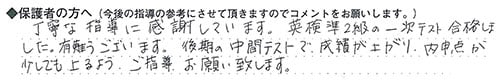 ◆保護者の方へ（今後の指導の参考にさせて頂きますのでコメントをお願いします。）
丁寧な指導に感謝しています。英検準2級の一次テスト合格は
した。有難うございます。後期の中間テストで、成績が上がり、内申点が
少しでも上るよう、ご指導お願い致します。